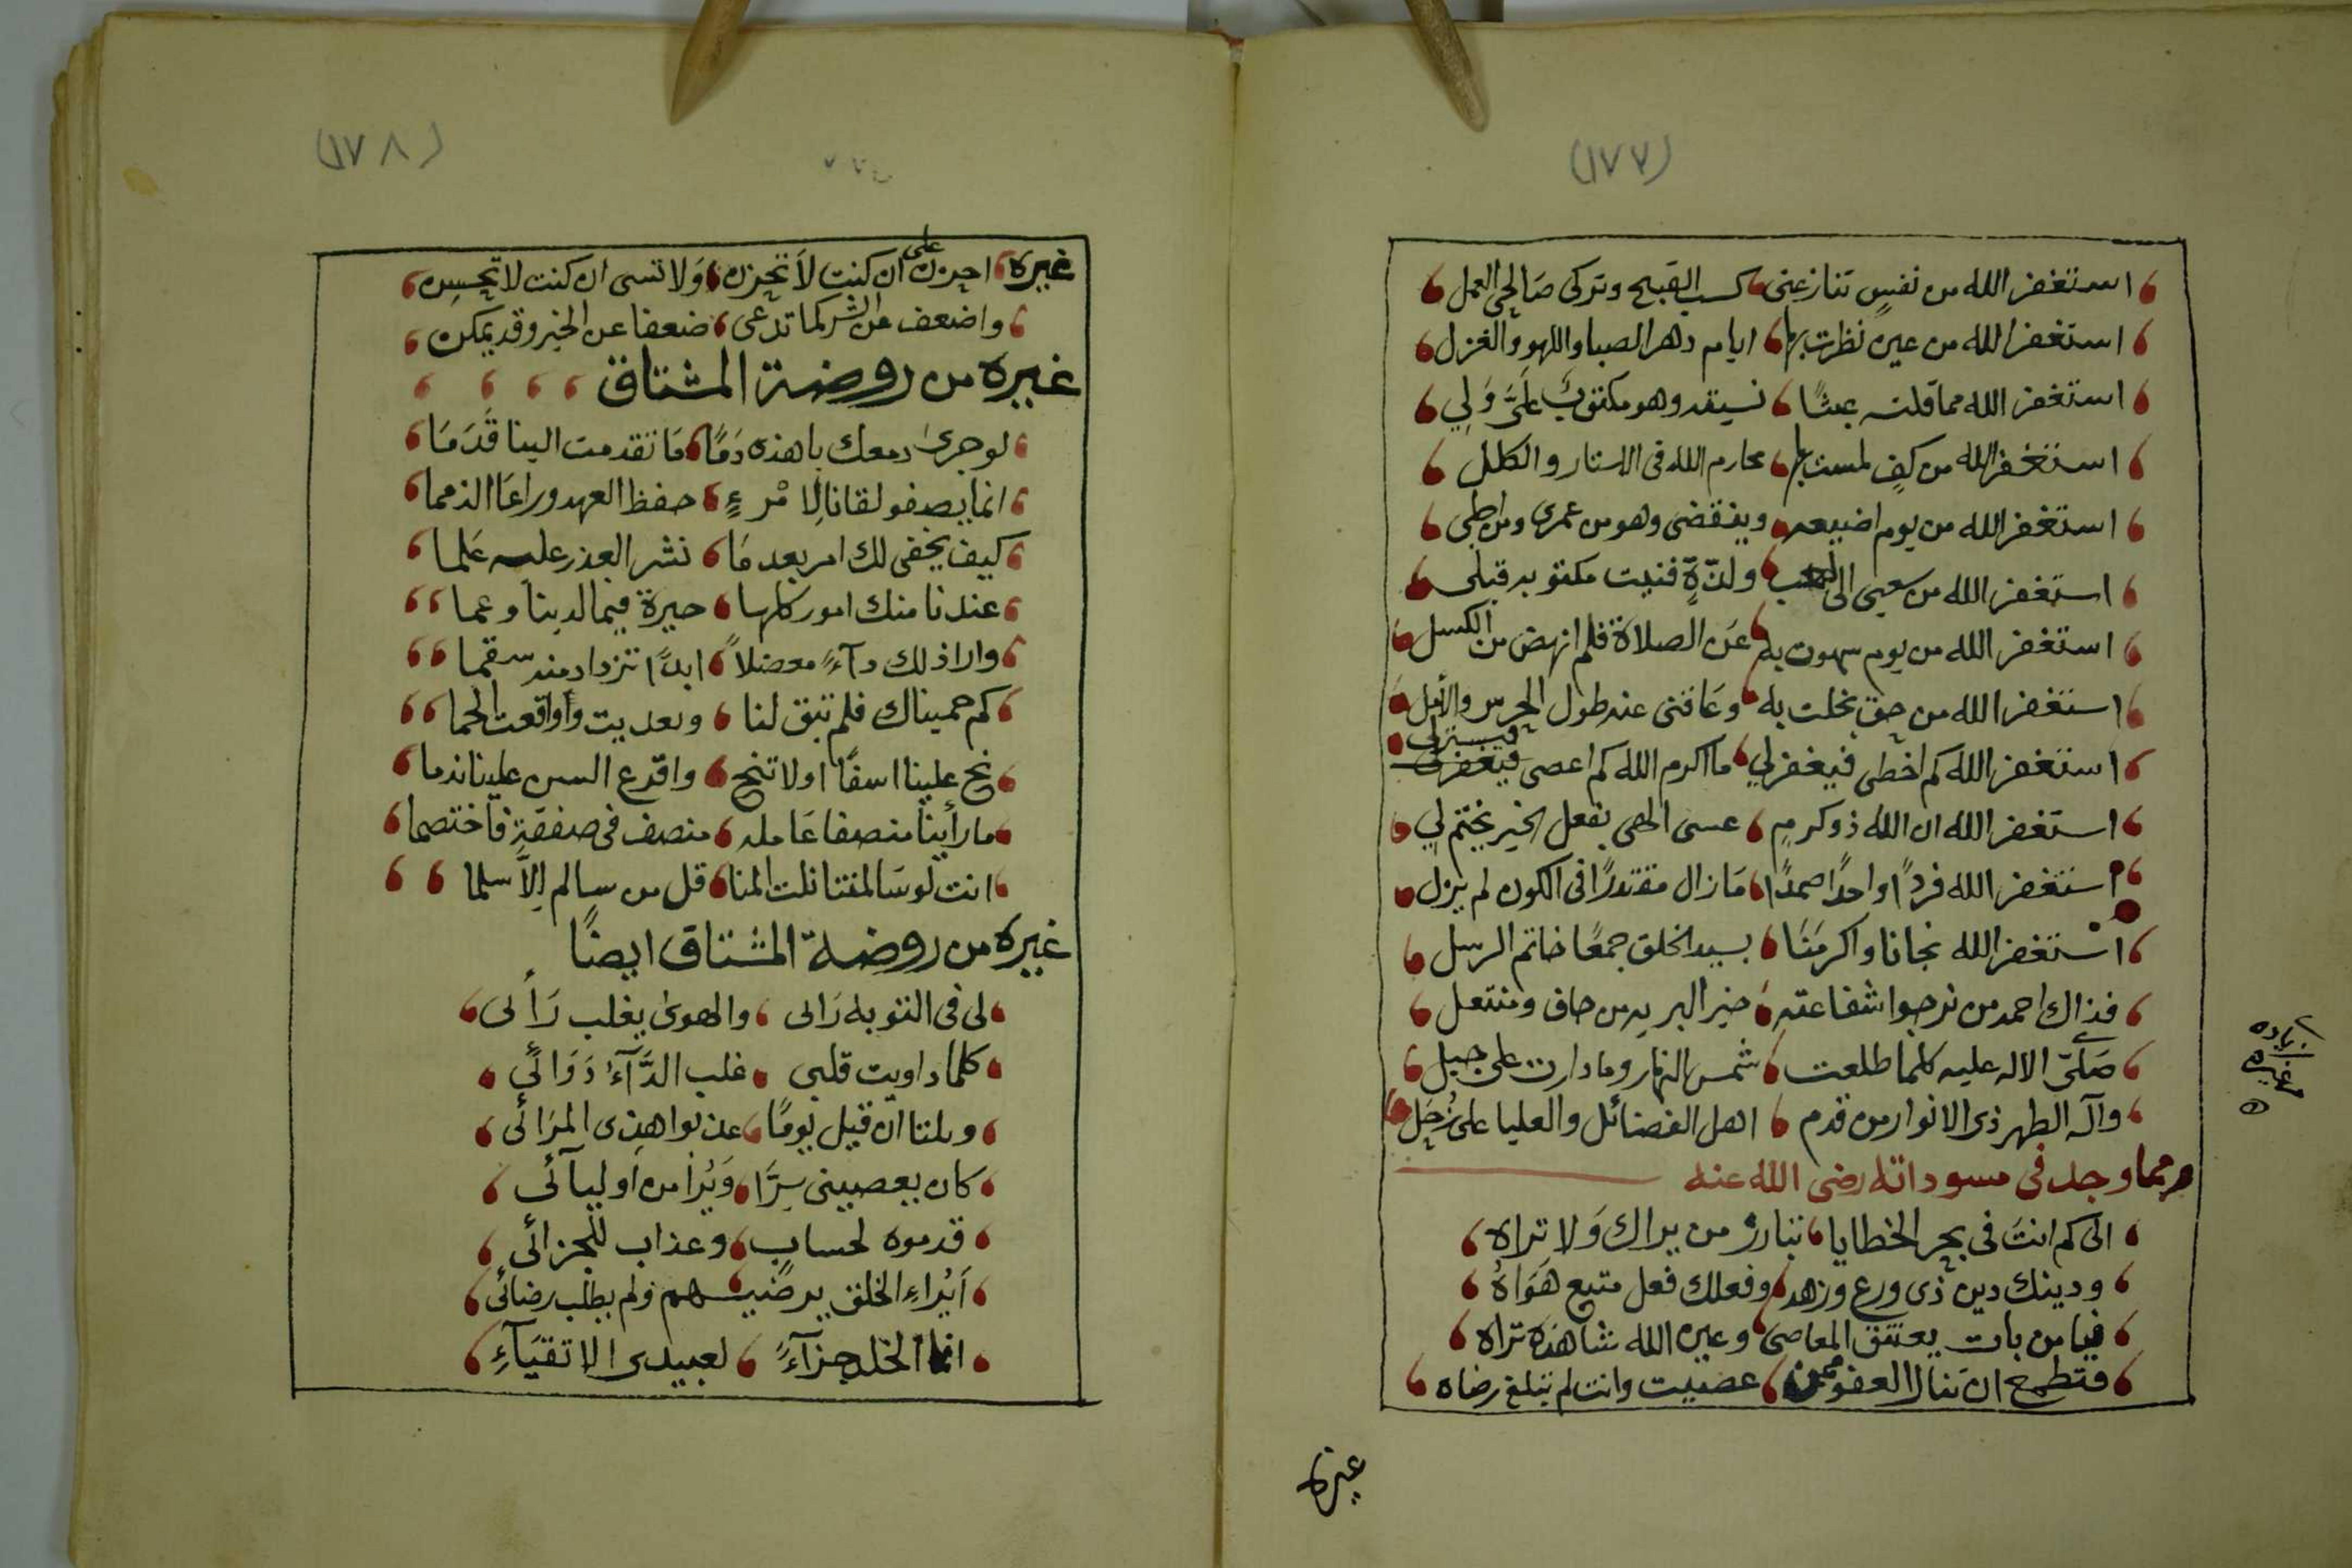 (١٧٧)
استغفر الله من نفسٍ تنازعنى كسب القبيح وتركى صَالحَ العمل
استغفر الله من عين نظرت بها ايام دهر الصبا واللهو والغزل
استغفر الله مما قلته عبثًا نسيته وهو مكتوبٌ عَلَىَّ وَلِي
استغفر الله من كفٍ لمست بها محارم الله فى الاستار والكلل
استغفر الله من يوم اضيعه وينقضى وهو من عمرى ومن اجلى
استغفر الله من سعيى الى لعب ولذّةٍ فنيت مكتوبه قبلى
استغفر الله من يوم سهوت به عَن الصلاة فلم انهض من الكسل
استغفر الله من حق بخلت به وعَاقنى عنه طول الحرس والأمل
استغفر الله كم اخطى فيغفر لي ما اكرم الله كم اعصى فيغفر لى فيستر لى
استغفر الله ان الله ذو كرمٍ عسى الهى بفعل الخير يختم لي
استَغفر الله فردًا واحدًا صمدًا مَا زال مقتدرًا فى الكون لم يزل
استغفر الله نجانا واكرمَنَا بسيد الخلق جمعًا خاتم الرسل
فذاك احمد من نرجوا شفاعته خير البريه من حاف ومنتعل
صَلىّ الاله عليه كلما طلعت شمس النهار وما دارت على جبل
وآله الطهر ذى الانوار من قدم اهل الفضائل والعليا على زُحَل
زياده
من غيره
ومما وجد فى مسوداته رضى الله عنه
الى كم انتَ فى بحر الخطايا تبارز من يراك وَلا تراه
ودينك دين ذى ورع وزهد وفعلك فعل متبع هَوَاهُ
فيا من بات يعتنق المعاصى وعين الله شاهدة تراه
فتطمع ان تنال العفو ممن عصيت وانت لم تبلغ رضاه
غيره
(١٧٨)
غيره احزن على ان كنت لاَ تحزن وَلا تسى ان كنت لا تحسِن
واضعف من الشر كما تدعى ضعفا عن الخير وقد يمكن
غيره من روضة المشتاق
لو جرى دمعك يا هذه دَمًا مَا تقدمت الينا قَدَمَا
انما يصفو لقانا لِامْرءٍ حفظ العهد وراعَا الذمما
كيف يخفى لك امر بعد مَا نشر العذر عليه عَلما
عندنا منك امور كلها حيرة فيما لدينا وعما
وارا ذلك دآءً معضلاً ابدًا تزداد منه سقما
كم حميناك فلم تبق لنا وتعديت وأواقعت الحما
نح علينا اسفًا اولا تنح واقرع السن علينا ندما
ما رأينا منصفا عَامله منصف فى صفقةٍ فاختصما
انت لو سَالمتنا نلت المنا قل من سالم اِلاَّ سلما
غيره من روضة المشتاق ايضًا
لى فى التوبه رَالى والهوى يغلب رَأ لى
كلما داويت قلبى غلب الدَّآءُ دَوَائًى
ويلتا ان قيل يومًا عذبوا هذى المرَائى
كان يعصينى سِرًّا وَيُرا من اوليآئى
قدموه لحساب وعذاب للجزائى
اَيُراءِ الخلق يرضيهم ولم يطلب رضائى
انما الخلد جزآءً لعبيدى الاتقيَآءِ